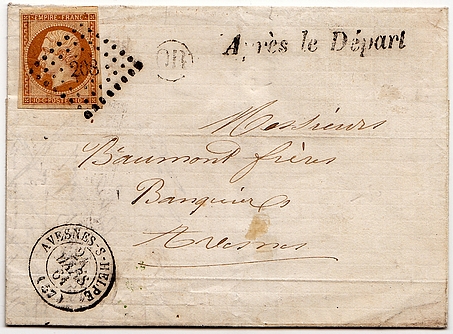 EMPIRE FRANC
10 C. POSTES 10 C.
203
OR
Après le Départ
Messieurs
Beaumont frères
Banquiers
Avesnes
AVESNES-S-HELPE
24
MARS
61
(57)